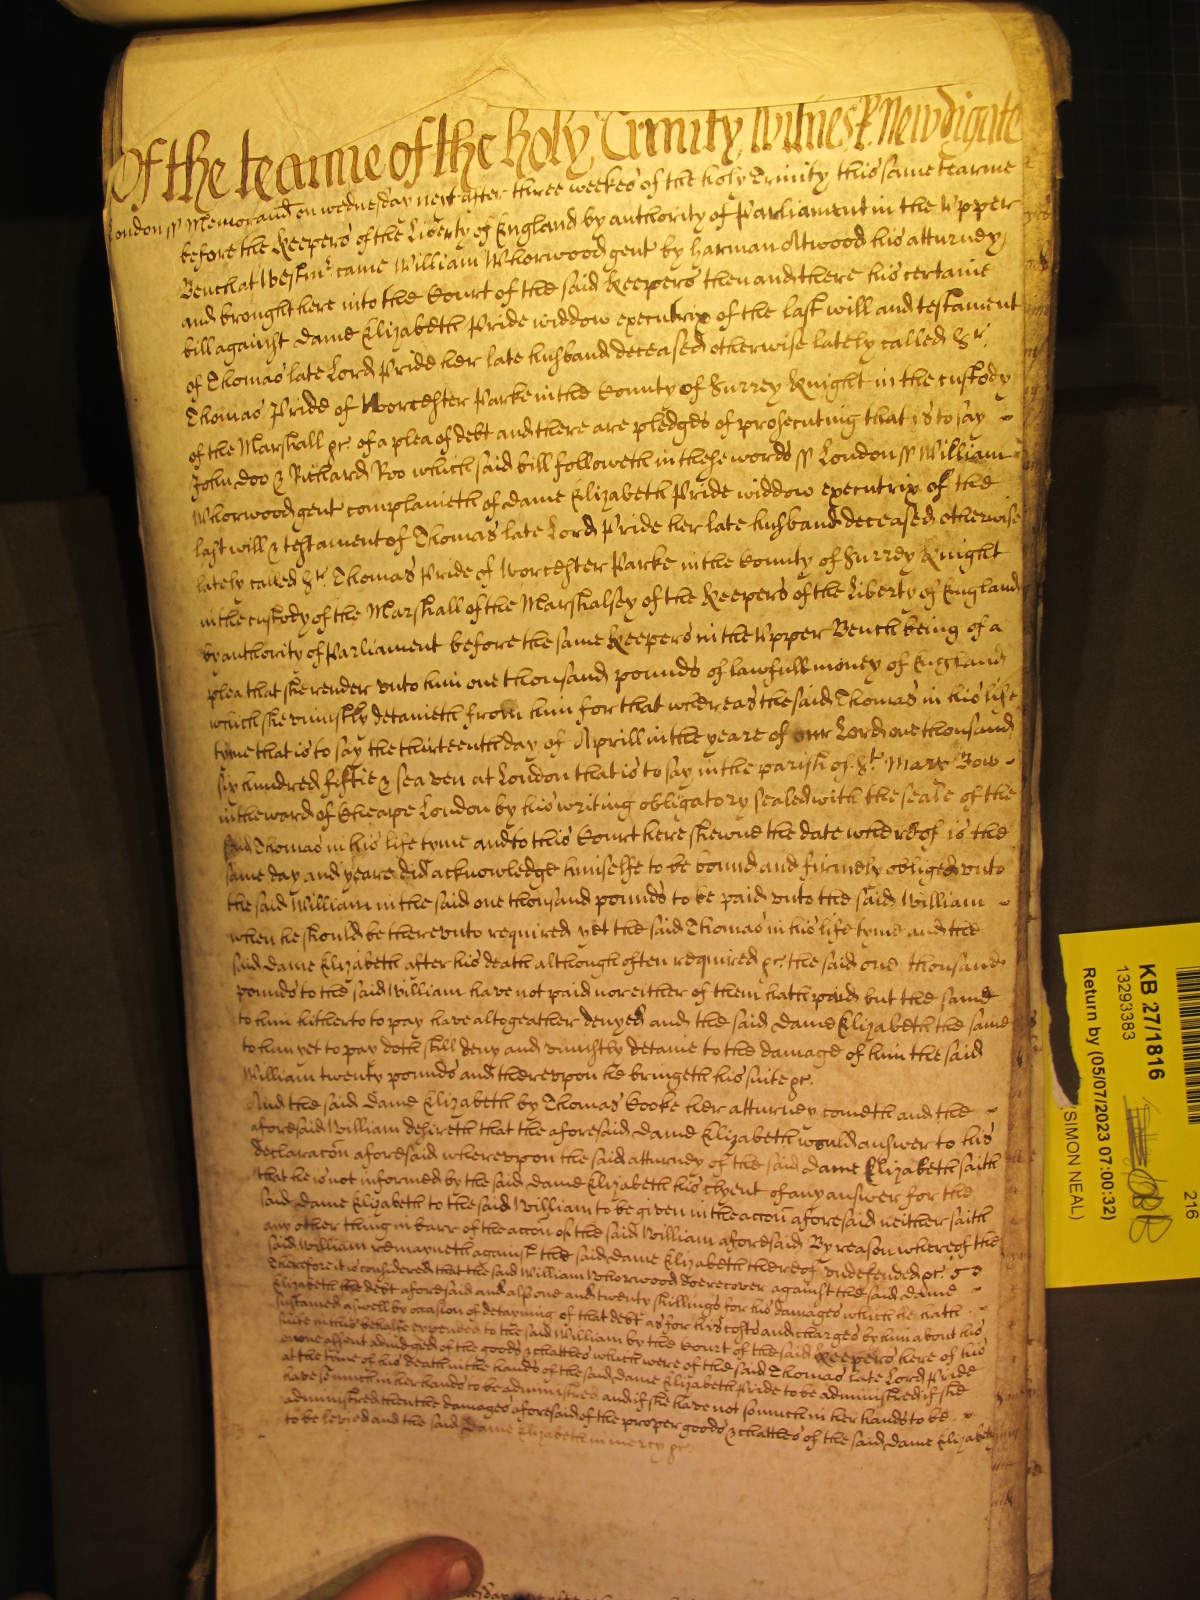 Of the tearme of the holy Trinity, Witnes R. Newdigate
London ss Memorand on wednesday next after three weekes of the holy Trinity this same tearme
before the Keepers of the Liberty of England by authority of Parliament in the Upper
Bench at Westmr. came William Whorwood gent by Harman Atwood his atturney
and brought here into the Court of the said Keepers then and there his certaine
bill against Dame Elizabeth Pride widdow executrix of the last will and testament
of Thomas late Lord Pride her late husband deceased otherwise lately called Sr.
Thomas Pride of Worcester Parke in the County of Surrey Knight in the custody
of the Marshall &c. of a plea of debt and there are pledges of prosecuting that is to say
John Doo & Richard Roo which said bill followeth in these words ss London ss William
Whorwood gent complaineth of Dame Elizabeth Pride widdow executrix of the
last will & testament of Thomas late Lord Pride her late husband deceased otherwise
lately called Sr. Thomas Pride of Worcester Parke in the County of Surrey Knight
in the custody of the Marshall of the Marshalsey of the Keepers of the Liberty of England
by authority of Parliament before the same Keepers in the Upper Bench being of a
plea that she render unto him one thousand pounds of lawfull money of England
which she uniustly detaineth from him for that whereas the said Thomas in his life
tyme that is to say the thirteenth day of Aprill in the yeare of our Lord one thousand
six hundred fiftie & seaven at London that is to say in the parish of St. Mary Bow
in the ward of Cheape London by his writing obligatory sealed with the seale of the
said Thomas in his life tyme and to this Court here shewne the date whereof is the
same day and yeare did acknowledge himselfe to be bound and firmely obliged unto
the said William in the said one thousand pounds to be paid unto the said William
when he should be thereunto required yet the said Thomas in his life tyme and the
said Dame Elizabeth after his death although often required &c. the said one thousand
pounds to the said William have not paid nor either of them hath paid but the same
to him hitherto to pay have altogeather denyed and the said Dame Elizabeth the same
to him yet to pay doth still deny and uniustly detaine to the damage of him the said
William twenty pounds and thereupon he bringeth his suite &c.
And the said Dame Elizabeth by Thomas Cooke her atturney cometh and the
aforesaid William desireth that the aforesaid Dame Elizabeth would answer to his
declaracon aforesaid whereupon the said atturney of the said Dame Elizabeth saith
that he is not informed by the said Dame Elizabeth his clyent of any answer for the
said Dame Elizabeth to the said William to be given in the accon aforesaid neither saith
any other thing in barr of the accon of the said William aforesaid By reason whereof the
said William remayneth against the said Dame Elizabeth thereof undefended &c.
Therefore it is considered that the said William Whorwood doe recover against the said Dame
Elizabeth the debt aforesaid and alsoe one and twenty shillings for his damages which he hath
sustained aswell by occasion of detayning of that debt as for his costs and charges by him about his
suite in this behalfe expended to the said William by the Court of the said Keepers here of his
owne assent adiudged of the goods & chattles which were of the said Thomas late Lord Pride
at the tyme of his death in the hands of the said Dame Elizabeth Pride to be administred if she
have so much in her hands to be administred and if she have not so much in her hands to be
administred then the damages aforesaid of the proper goods & chattles of the said Dame Elizabeth
to be levied and the said Dame Elizabeth in mercy &c.
KB 27/1816
13293383
Return by (05/07/2023 07:00:32)
(SIMON NEAL)
216